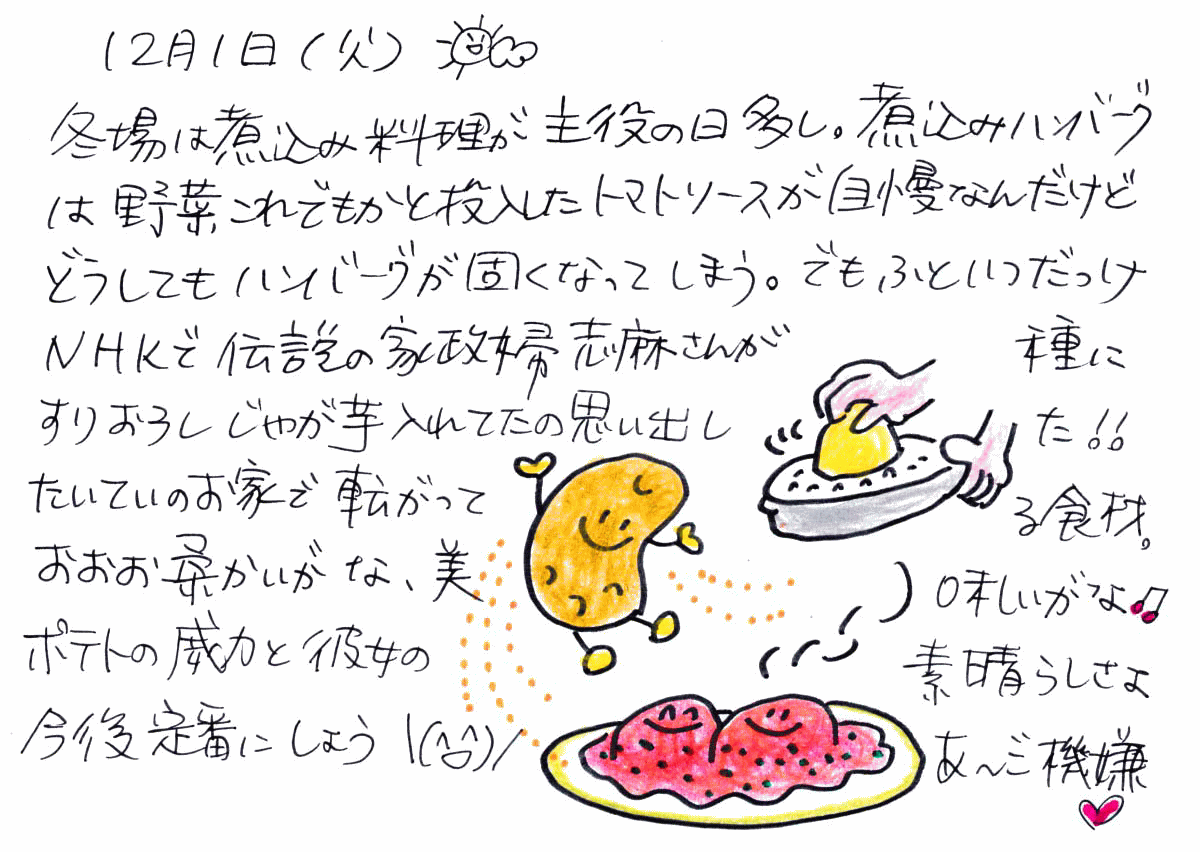 12月1日(火)
冬場は煮込み料理が主役の日多し。煮込みハンバーグ
は野菜これでもかと投入したトマトソースが自慢なんだけど
どうしてもハンバーグが固くなってしまう。でもふといつだっけ
NHKで伝説の家政婦志麻さんが種に
すりおろしじゃが芋入れてたの思い出した!!
たいていのお家で転がってる食材。
おおお柔かいがな、美味しいがなよ♫
ポテトの威力と彼女の素晴らしさよ
今後定番にしよう \(^○^)/ あ〜ご機嫌